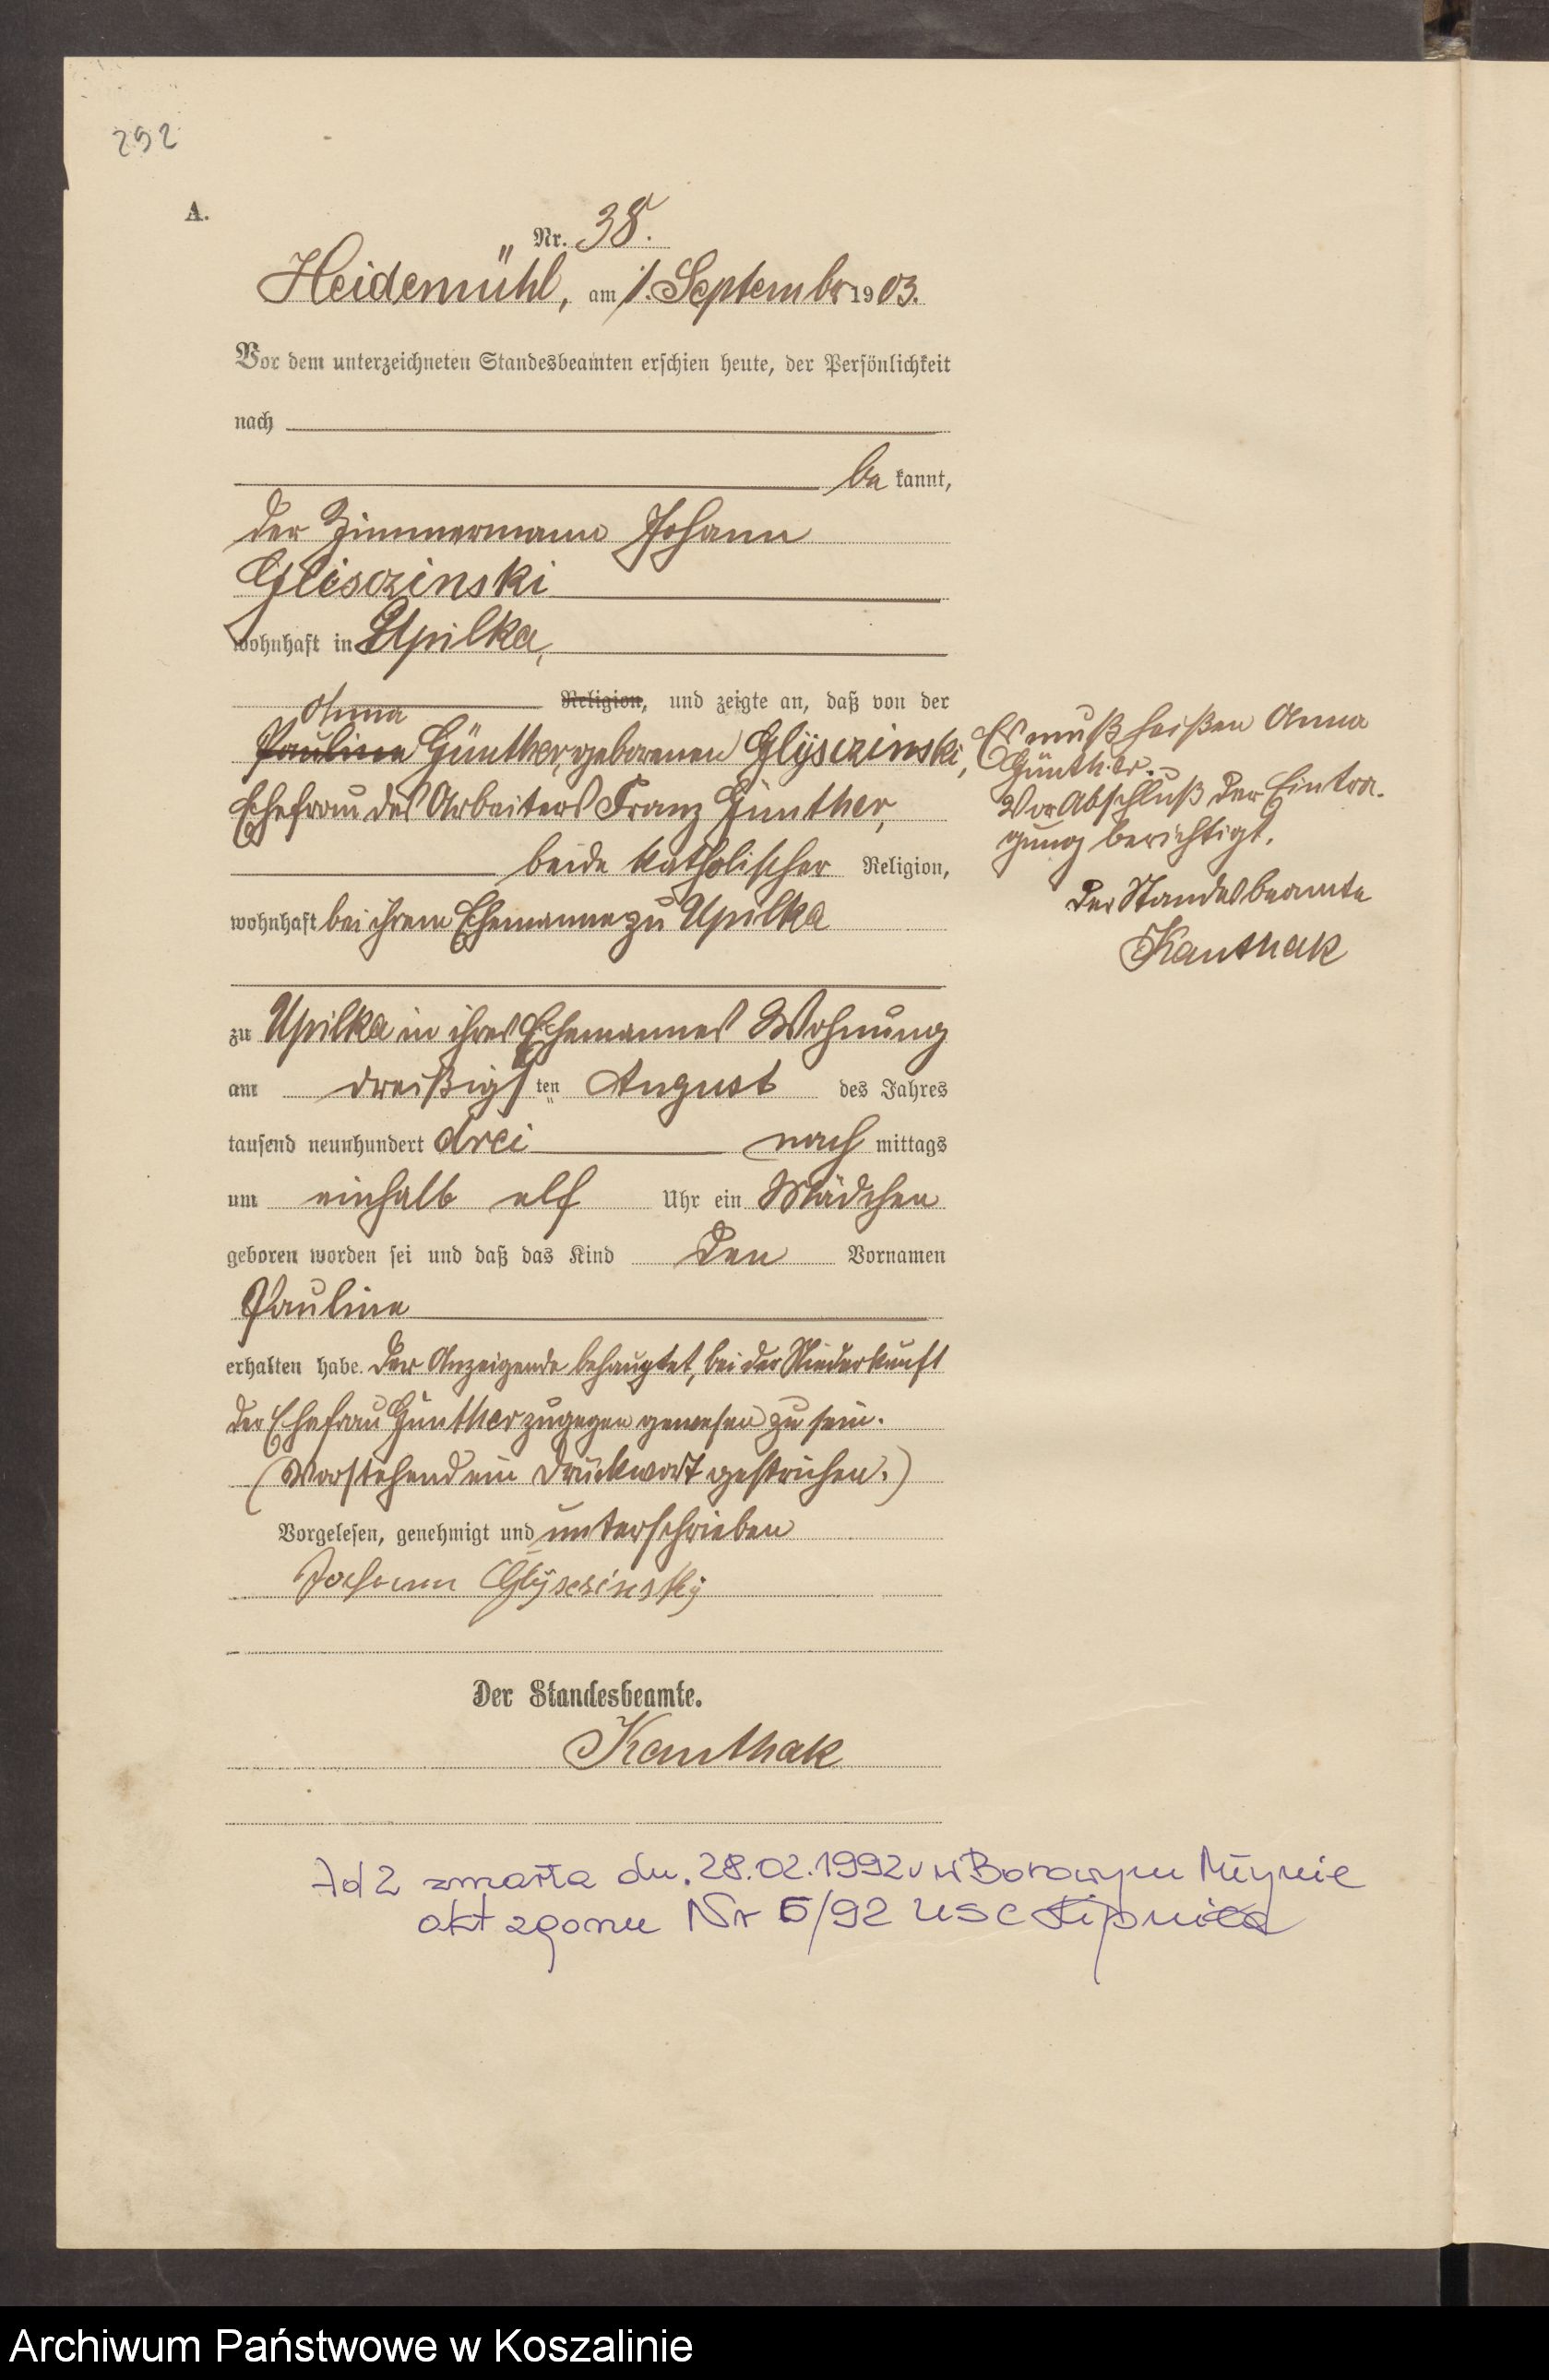 292
A.
Nr. 38.
Heidemühl, am 1. September 1903.
Vor dem unterzeichneten Standesbeamten erschien heute, der Persönlichkeit
nach
be kannt,
der Zimmermann Johann
Glisczinski
wohnhaft in Upilka,
Religion, und zeigte an, daß von der
Anna
Pauline Günther, geborenen Glÿsczinski,
Ehefrau des Arbeiters Franz Günther,
beide katholischer Religion,
wohnhaft bei ihrem Ehemanne zu Upilka
zu Upilka in ihres Ehemannes Wohnung
am dreißigsten August des Jahres
tausend neunhundert drei nach mittags
um einhalb elf Uhr ein Mädchen
geboren worden sei und daß das Kind den Vornamen
Pauline
erhalten habe. Der Anzeigende behauptet, bei der Niederkunft
der Ehefrau Günther zugegen gewesen zu sein.
(Vorstehend ein Druckwort gestrichen.)
Vorgelesen, genehmigt und unterschrieben
Johann Glÿsczinskÿ
Der Standesbeamte.
Kanthak
Es muß heißen Anna
Günther.
Vor Abschluß der Eintra-
gung berichtigt.
Der Standesbeamte
Kanthak
Ad 2 zmarła dn. 28.02.1992 r w Borowym Młynie
akt zgonu Nr 5/92 USC Lipnica
Archiwum Państwowe w Koszalinie